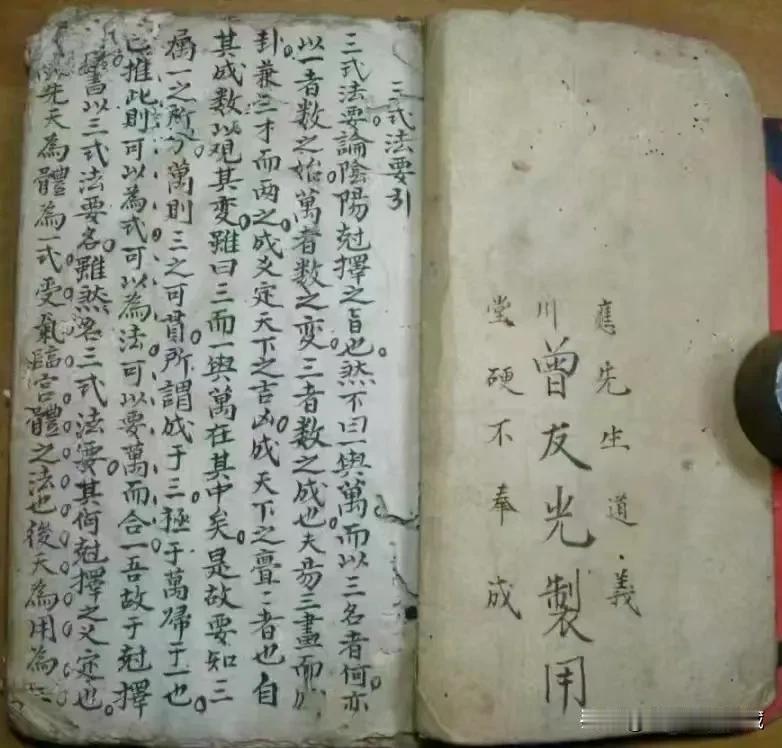 應先生道義
川曾友光製用
堂硬不奉成
三式法要引
三式法要論陰陽尅擇之旨也。然不曰一與萬而以三名者何亦。
以一者数之始萬者数之变。三者数之成也。夫易三畫而
卦。兼三才而两之成爻定天下之吉凶。成天下之亹〻者也自
其成数以观其变。雖曰三而一與萬在其中矣。是故要知三
属一之所分。萬則三之可貫。所謂成于三極于萬歸于一也。
已推此則可以為式可以為法可以要萬而合一。吾故于尅擇
書以三式法要名。雖然名三式法要其何尅擇之 定也。
先天為體為一式受氣臨宫體之法也後天為用為